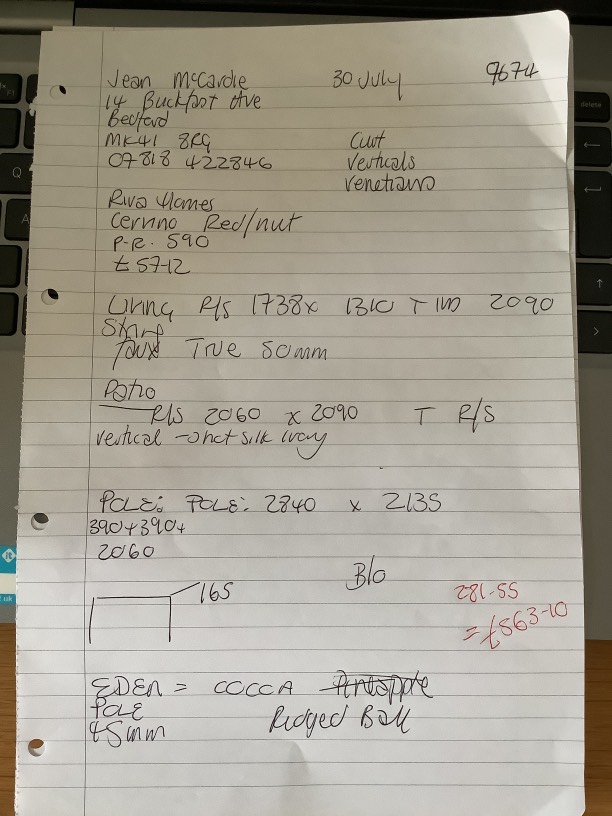 Jean McCardle 30 July 9674
14 Buckfast Ave
Bedford
MK41 8RQ Curt
07818 422846 Verticals
Venetians
Riva Homes
Red/nut
P.R. 590
£57-12
Living R/S 1738 x 1310 T 2090
True 50mm
Patio
R/S 2060 x 2090 T R/S
vertical silk ivory
POLE: POLE: 2840 x 2135
390+390+
2060
165
B/o
281-55
= £863-10
EDEN = COCCA Pineapple
POLE Ridged Ball
45mm
delete